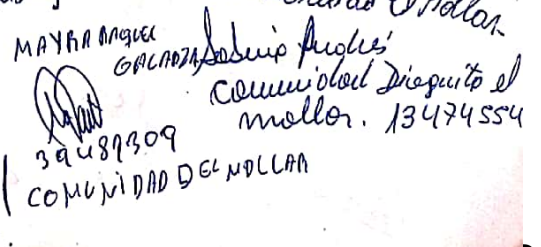 Mollar.
MAYRA RAQUEL
GALARZA
Comunidad Dieguito el
mollar. 13474554
39487309
COMUNIDAD DEL MOLLAR